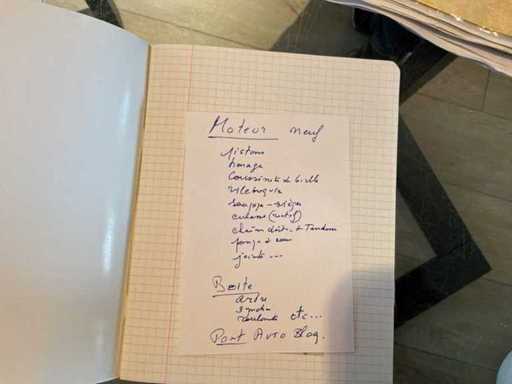 Moteur neuf
pistons
honage
Coussinets de bielle
vilebrequin
soupape - sièges
culasse (rectif)
chaîne distri. + Tendeur
pompe à eau
joints ...
Boîte
arbre
synchro
roulements etc...
Pont Auto Bloq.